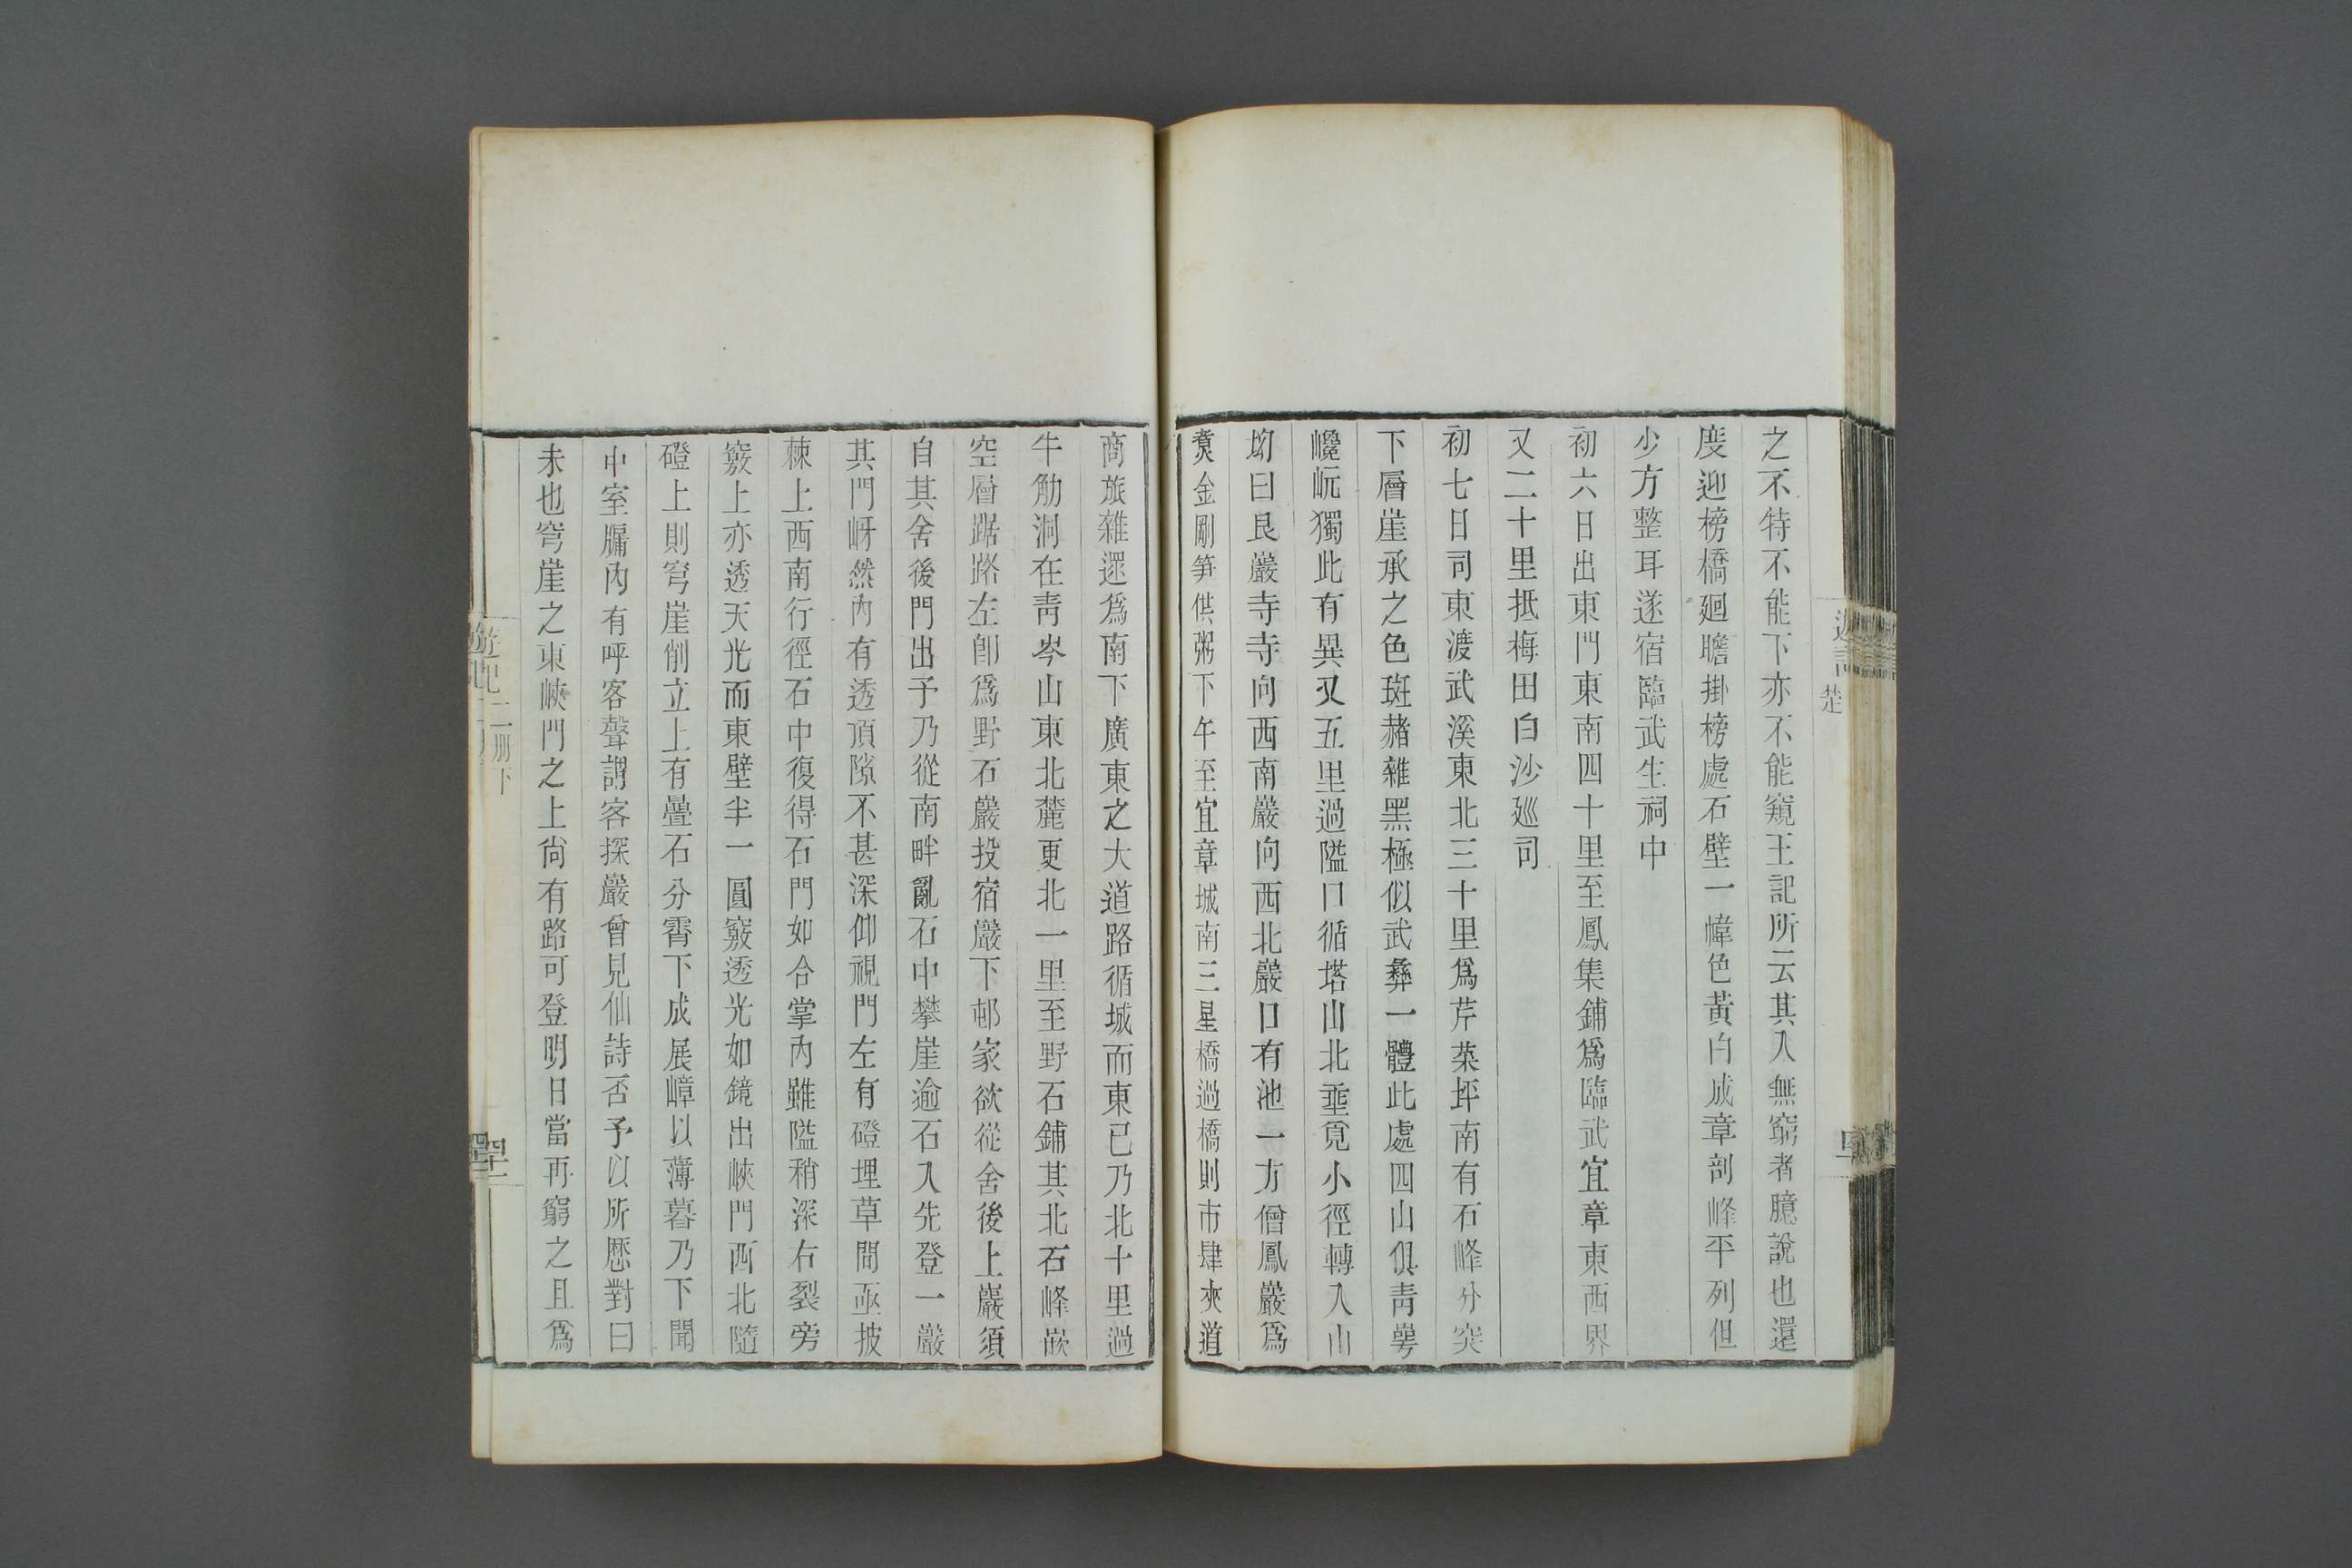 遊記
楚
之不特不能下亦不能窺王記所云其入無窮者臆說也還
度迎榜橋廻瞻掛榜處石壁一幃色黃白成章剖峰平列但
少方整耳遂宿臨武生祠中
初六日出東門東南四十里至鳳集鋪爲臨武宜章東西界
又二十里抵梅田白沙廵司
初七日司東渡武溪東北三十里爲芹菜坪南有石峰分突
下層崖承之色斑赭雜黑極似武彝一體此處四山俱青崿
巉岏獨此有異又五里過隘口循塔山北垂覓小徑轉入山
坳曰艮巖寺寺向西南巖向西北巖口有池一方僧鳳巖爲
煑金剛笋供粥下午至宜章城南三星橋過橋則市肆夾道
商旅雜還爲南下廣東之大道路循城而東已乃北十里過
牛觔洞在青岑山東北麓更北一里至野石鋪其北石峰嵌
空層踞路左卽爲野石巖投宿巖下邨家欲從舍後上巖須
自其舍後門出予乃從南畔亂石中攀崖逾石入先登一巖
其門岈然內有透頂隙不甚深仰視門左有磴埋草間亟披
棘上西南行徑石中復得石門如合掌內雖隘稍深右裂旁
竅上亦透天光而東壁半一圓竅透光如鏡出峽門西北隨
磴上則穹崖削立上有疊石分霄下成展嶂以薄暮乃下聞
中室牖內有呼客聲謂客探巖曾見仙詩否予以所歷對曰
未也穹崖之東峽門之上尙有路可登明日當再窮之且爲
遊記
二册下